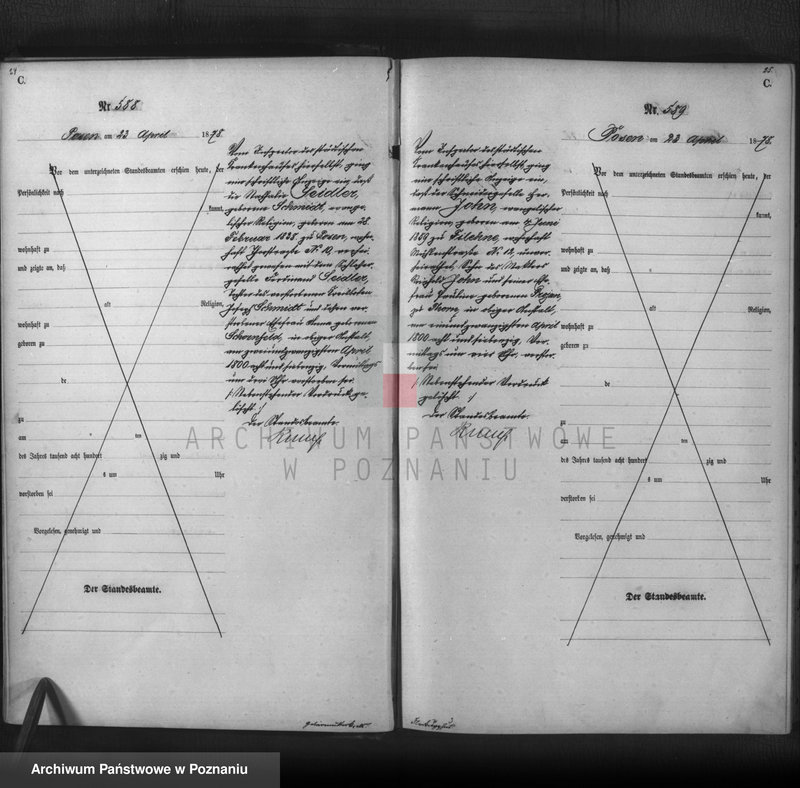 24
C.
Nr. 588
Posen am 23 April 1878.
Vor dem unterzeichneten Standesbeamten erschien heute, der
Persönlichkeit nach
kannt,
wohnhaft zu
und zeigte an, daß
alt Religion,
wohnhaft zu
geboren zu
de
zu
am ten
des Jahres tausend acht hundert zig und
s um Uhr
verstorben sei
Vorgelesen, genehmigt und
Der Standesbeamte.
Vom Inspector des städtischen
Krankenhauses hierselbst, ging
eine schriftliche Anzeige ein, daß
die Seidler,
geborene Schmidt, evange-
lischer Religion, geboren am 28.
Februar 1828 zu Posen, wohn-
haft No 10, verhei-
rathet gewesen mit dem Schlosser-
geselle Ferdinand Seidler,
Tochter des verstorbenen
Joseph Schmidt und dessen ver-
storbener Ehefrau Anna geborenen
Schoenfeld, in obiger Anstalt,
am zweiundzwanzigsten April
1800 acht und siebenzig, Vormittags
um drei Uhr verstorben sei.
/: Nebenstehender Vordruck ge-
löscht :/
Der Standesbeamte.
25
C.
Nr. 589
Posen am 23 April 1878.
Vor dem unterzeichneten Standesbeamten erschien heute, der
Persönlichkeit nach
kannt,
wohnhaft zu
und zeigte an, daß
alt Religion,
wohnhaft zu
geboren zu
de
zu
am ten
des Jahres tausend acht hundert zig und
s um Uhr
verstorben sei
Vorgelesen, genehmigt und
Der Standesbeamte.
Vom Inspector des städtischen
Krankenhauses hierselbst, ging
eine schriftliche Anzeige ein,
daß der Schneidergeselle Her-
mann John, evangelischer
Religion, geboren am Juni
zu Filehne, wohnhaft
No 12, unver-
heirathet, Sohn des
John und seiner Ehe-
frau Pauline geborenen
zu Thorn, in obiger Anstalt,
am einundzwanzigsten April
1800 acht und siebenzig, Vor-
mittags um Uhr, verstor-
ben sei
/: Nebenstehender Vordruck
gelöscht :/
Der Standesbeamte.
ARCHIWUM PAŃSTWOWE
W POZNANIU
Archiwum Państwowe w Poznaniu